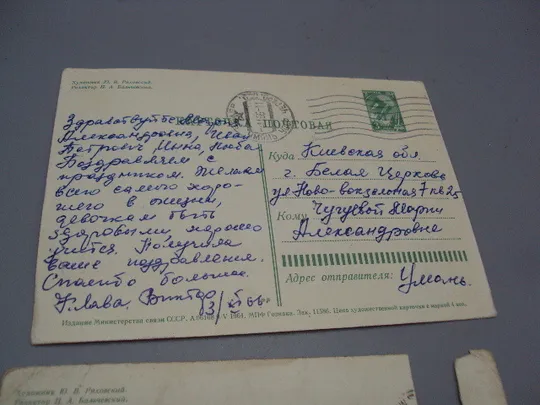 Художник Ю. В. Ряховский.
Редактор П. А. Балачевский.
КАРТОЧКА ПОЧТОВАЯ
Здравствуйте
Александровна, Иван
Петрович Нина, Люба!
Поздравляем с
праздником. Желаем
всего самого хоро-
шего в жизни,
девочкам быть
здоровыми, хорошо
учится. Получила
Ваше поздравление.
Спасибо большое.
Клава, Виктор
Куда Киевская обл.
г. Белая Церковь
ул Ново-вокзальная 7 кв 25
Кому Чугуевой Марии
Александровне
Адрес отправителя: Умань.
Издание Министерства связи СССР, V 1964. МПФ Гознака. Зак. 11386. Цена художественной карточки с маркой 4 коп.
Художник Ю. В. Ряховский.
Редактор П. А. Балачевский.